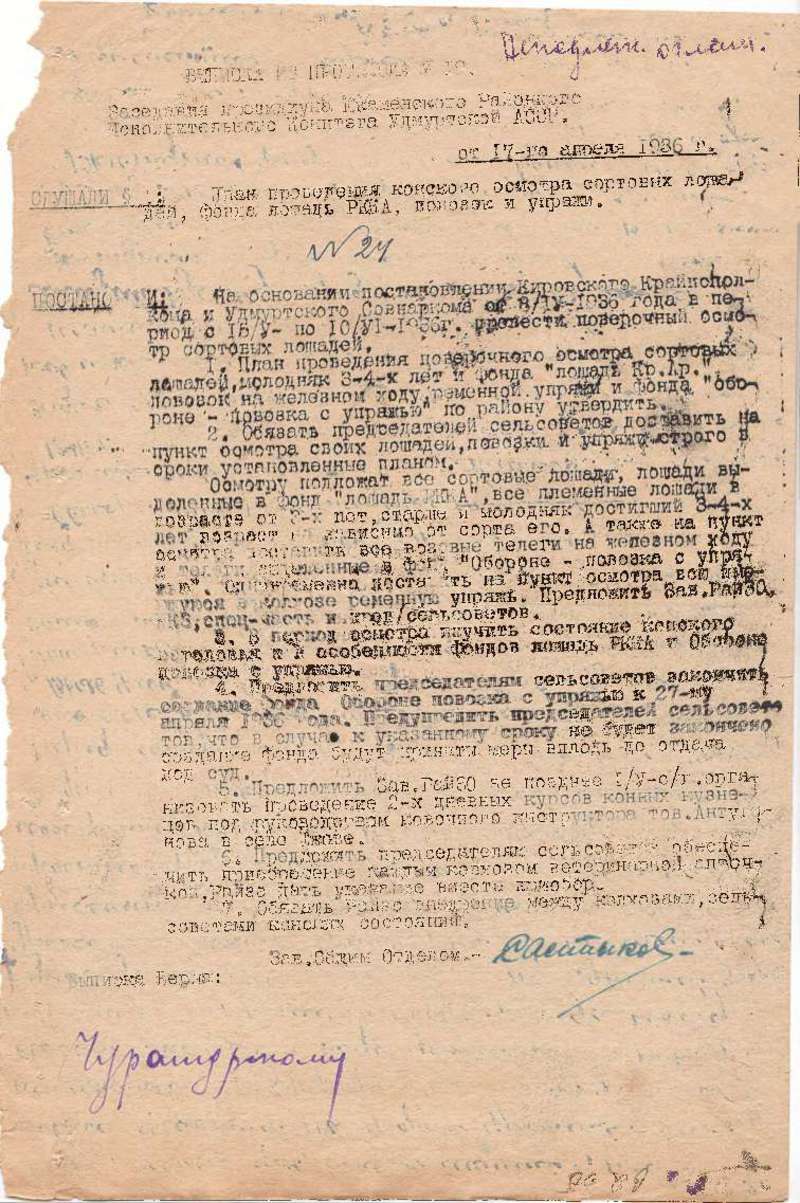 ВЫПИСКА ИЗ ПРОТОКОЛА
Заседания президиума Районного
Исполнительного Комитета Удмуртской АССР.
от 17-го апреля 1936 г.
СЛУШАЛИ : План проведения конского осмотра сортовых лоша-
дей, фонда лошадь РККА, повозок и упряжи.
№ 24
ПОСТАНО И: На основании постановлении Кировского Крайиспол-
кома и Удмуртского Совнаркома от 8/IV-1936 года в пе-
риод с 15/V- по 10/VI-1936г. провести поверочный осмо-
тр сортовых лошадей.
1. План проведения поверочного осмотра сортовых
лошадей,молодняк 3-4-х лет и фонда "лошадь Кр.Ар."
повозок на железном ходу,ременной упряжи и фонда "обо-
роне - повозка с упряжью" по району утвердить.
2. Обязать председателей сельсоветов доставить на
пункт осмотра своих лошадей,повозки и упряжи строго в
сроки установленные планом.
Осмотру подложат все сортовые лошади, лошади вы-
деленные в фонд "лошадь РККА",все племенные лошади в
возрасте от 3-х лет,старше и молодняк достигший 3-4-х
лет возраст не зависимо от сорта его. А также на пункт
осмотра доставить все возовые телеги на железном ходу
и телеги выделенные в фонд "Обороне - повозка с упря-
жью". Одновременно доставить на пункт осмотра всю имею-
щуюся в колхозе ременную упряжь. Предложить Зав.РайЗО,
спец-часть и сельсоветов.
3. В период осмотра изучить состояние конского
поголовья и в особенности фондов лошадь РККА и Обороне
повозка с упряжью.
4. Предложить председателям сельсоветов закончить
создание фонда Обороне повозка с упряжью к 27-му
апреля 1936 года. Предупредить председателей сельсове-
тов,что в случае к указанному сроку не будет закончено
создание фонда будут приняты меры вплодь до отдачи
под суд.
5. Предложить Зав.РайЗО не позднее 1/V-с/г.орга-
низовать проведение 2-х дневных курсов конных кузне-
цов под руководством ковочного инструктора тов.
в село
6. Предложить председателям сельсоветов обеспе-
чить приобретение каждым колхозом ветеринарной аптеч-
кой,РайЗО дать указание
7. Обязать РайЗО внедрение между колхозами,сель-
советами конских состояний.
Зав.Общим Отделом.-
Выписка Верна:
Чурашурскому